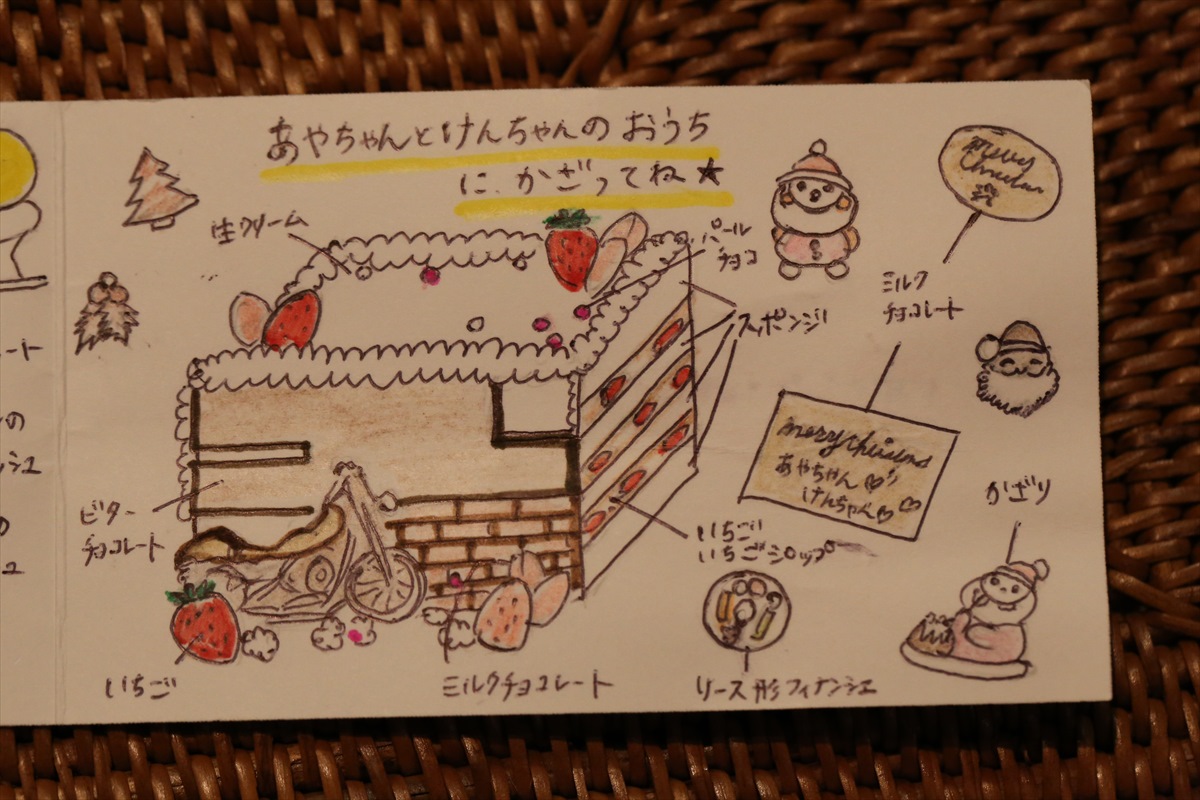 あやちゃんとけんちゃんの おうち
に、かざってね★
生クリーム
パール
チョコ
スポンジ
Merry
ミルク
チョコレート
merry
あやちゃん♡
けんちゃん♡ ♡
かざり
ビター
チョコレート
いちご
いちごシロップ
いちご
ミルクチョコレート
リース形フィナンシェ
ート
の
シェ